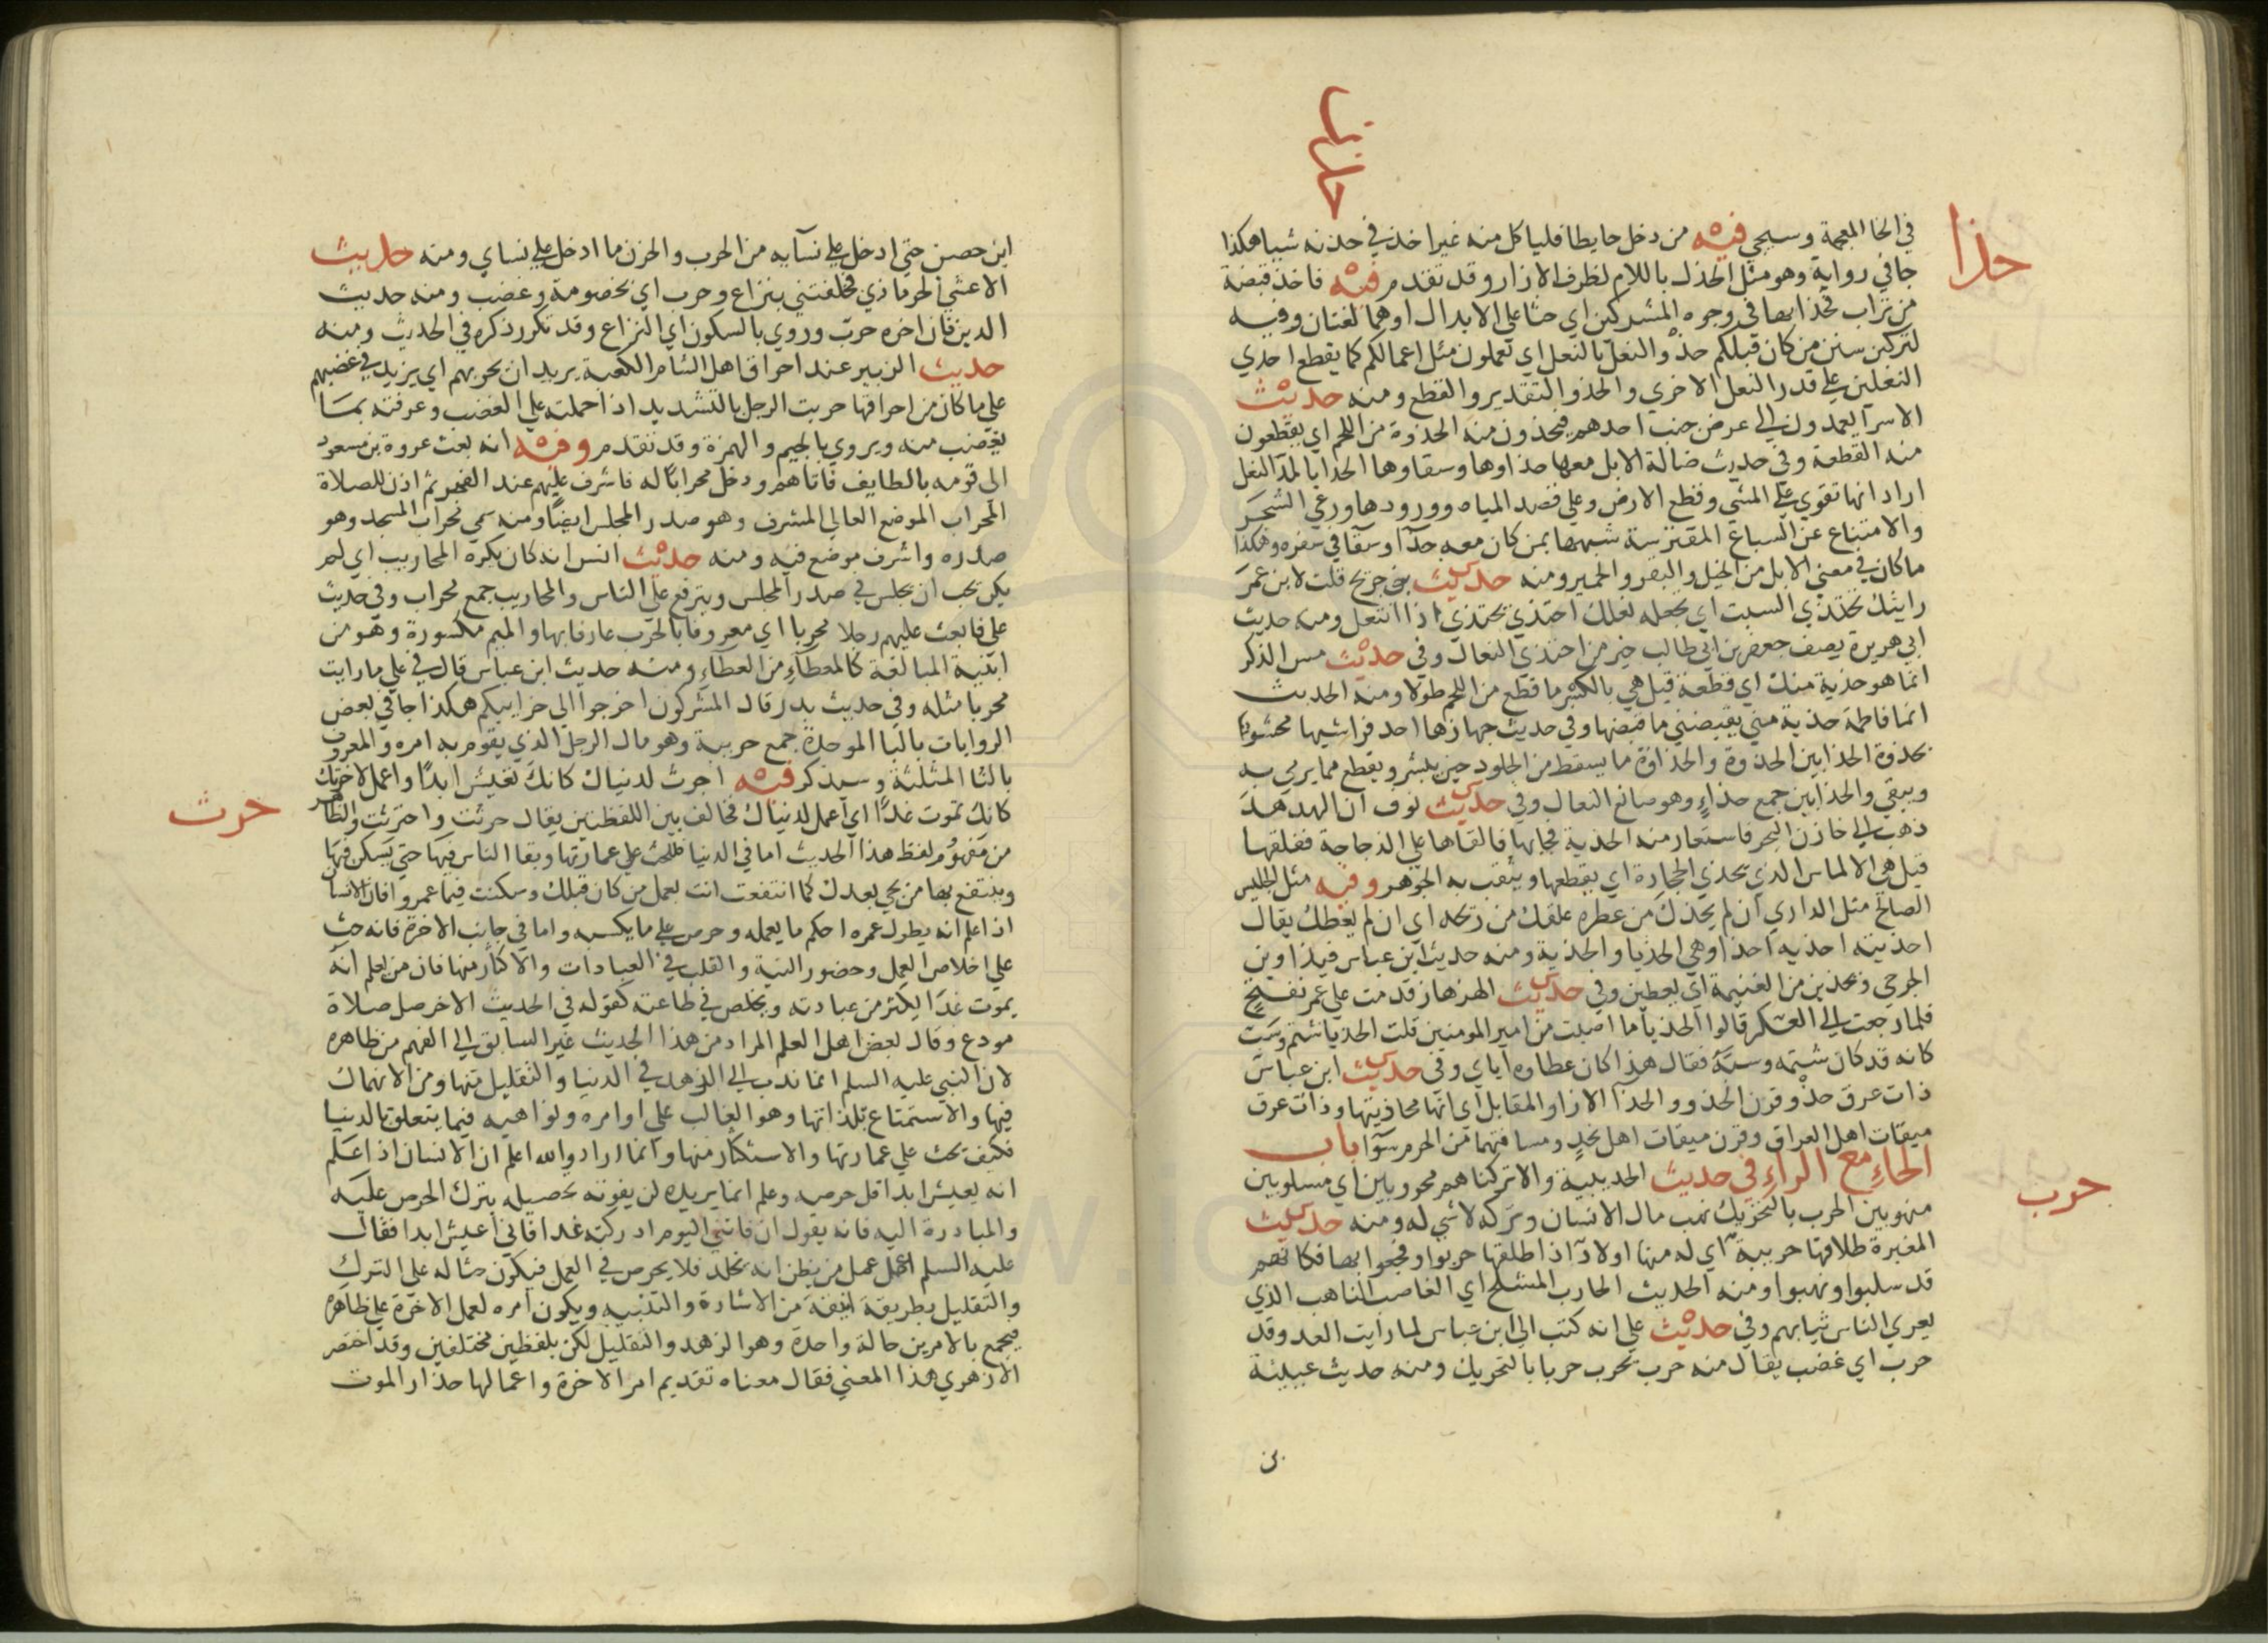 حذا
في الخا المعجمة وسيجي فيه من دخل حايطا فلياكل منه غير اخذ في حذنه شيا هكذا
جا في رواية وهو مثل الحذل باللام لطرف الازار وقد تقدم فيه فاخذ قبضة
من تراب فحذا بها في وجوه المشركين اي حثا علي الابدال او هما لغتان وفيه
لتركبن سنن من كان قبلكم حذو النعل بالنعل اي تعملون مثل اعمالكم كما يقطع احدي
النعلين علي قدر النعل الاخري والحذو التقدير والقطع ومنه حديث
الاسرا يعمدون الي عرض جنب احدهم فيحذون منه الحذوة من اللحم اي يقطعون
منه القطعة وفي حديث ضالة الابل معها حذاوها وسقاوها الحذا بالمد النعل
اراد انها تقوي علي المشي وقطع الارض وعلي قصد المياه وورودها ورعي الشجر
والامتناع عن السباع المفترسة شبهها بمن كان معه حذآ وسقآ في سفره وهكذا
ما كان في معني الابل من الخيل والبقر والحمير ومنه حديث بن جريج قلت لابن عمر
رايتك تحتذي السبت اي تجعله نعلك احتذي يحتذي اذا انتعل ومنه حديث
ابي هريرة يصف جعفر بن ابي طالب خير من احتذي النعال وفي حديث مس الذكر
انما هو حذية منك اي قطعة قيل هي بالكسر ما قطع من اللحم طولا ومنه الحديث
انما فاطمة حذية مني يقبضني ما قبضها وفي حديث جهازها احد فراشيها محشو
بحذوة الحذايين الحذوة والحذاوة ما يسقط من الجلود حين يبشر ويقطع مما يرمي به
ويبقي والحذايين جمع حذاء وهو صانع النعال وفي حديث نوف ان الهدهد
ذهب الي خازن البحر فاستعار منه الحذية فجا بها فالقاها علي الزجاجة ففلقها
قيل هي الالماس الذي يحذي الحجارة اي يقطعها ويثقب به الجوهر وفيه مثل الجليس
الصالح مثل الداري ان لم يحذك من عطره علقك من ريحه اي ان لم يعطك يقال
احذيته احذيه احذا وهي الحذيا والحذية ومنه حديث ابن عباس فيداوين
الجرحي ويحذين من الغنيمة اي يعطين وفي حديث الهزهاز قدمت علي عمر بفتح
فلما رجعت الي العسكر قالوا الحذيا ما اصبت من امير المومنين قلت الحذيا شتم وسب
كانه قد كان شتمه وسبه فقال هذا كان عطاوه اياي وفي حديث ابن عباس
ذات عرق حذو قرن الحذو والحذآ الازا والمقابل اي انها محاذيتها وذات عرق
ميقات اهل العراق وقرن ميقات اهل نجد ومسافتهما من الحرم سوآ باب
الحاء مع الراء في حديث الحديبية والا تركناهم محروبين اي مسلوبين
حرب
منهوبين الحرب بالتحريك نهب مال الانسان وتركه لا شي له ومنه حديث
المغيرة طلاقها حريبة اي له منها اولاد اذا طلقها حربوا وفجعوا بها فكانهم
قد سلبوا ونهبوا ومنه الحديث الحارب المشلح اي الغاصب الناهب الذي
يعري الناس ثيابهم وفي حديث علي انه كتب الي ابن عباس لما رايت العدو قد
حرب اي غضب يقال منه حرب يحرب حربا بالتحريك ومنه حديث عيينة
بن
ابن حصن حتي ادخل علي نسآيه من الحرب والحزن ما ادخل علي نساي ومنه حديث
الاعشي الحرمازي فخلفتني بنزاع وحرب اي بخصومة وغضب ومنه حديث
الدين فان اخره حرب وروي بالسكون اي النزاع وقد تكرر ذكره في الحديث ومنه
حديث الزبير عند احراق اهل الشام الكعبة يريد ان يحربهم اي يزيد في غضبهم
علي ما كان من احراقها حربت الرجل بالتشديد اذا حملته علي الغضب وعرفته بما
يغضب منه ويروي بالجيم والهمزة وقد تقدم وفيه انه بعث عروة بن مسعود
الي قومه بالطايف فاتاهم ودخل محرابا له فاشرف عليهم عند الفجر ثم اذن للصلاة
المحراب الموضع العالي المشرف وهو صدر المجلس ايضا ومنه سمي محراب المسجد وهو
صدره واشرف موضع فيه ومنه حديث انس انه كان يكره المحاريب اي لم
يكن يحب ان يجلس في صدر المجلس ويترفع علي الناس والمحاريب جمع محراب وفي حديث
علي فابعث عليهم رجلا محربا اي معروفا بالحرب عارفا بها والميم مكسورة وهو من
ابنية المبالغة كالمعطاء من العطاء ومنه حديث ابن عباس قال في علي ما رايت
محربا مثله وفي حديث بدر قال المشركون اخرجوا الي حرايبكم هكذا جا في بعض
الروايات بالبا الموحدة جمع حريبة وهو مال الرجل الذي يقوم به امره والمعروف
بالثا المثلثة وسيذكر فيه احرث لدنياك كانك تعيش ابدا واعمل لاخرتك
حرث
كانك تموت غدا اي اعمل لدنياك فخالف بين اللفظتين يقال حرثت واحترثت والظاهر
من مفهوم لفظ هذا الحديث اما في الدنيا فللحث علي عمارتها وبقا الناس فيها حتي يسكن فيها
وينتفع بها من يجي بعدك كما انتفعت انت بعمل من كان قبلك وسكنت فيما عمر فان الانسان
اذا علم انه يطول عمره احكم ما يعمله وحرص علي ما يكسبه واما في جانب الاخرة فانه حث
علي اخلاص العمل وحضور النية والقلب في العبادات والاكثار منها فان من يعلم انه
يموت غدا يكثر من عبادته ويخلص في طاعته كقوله في الحديث الاخر صل صلاة
مودع وقال بعض اهل العلم المراد من هذا الحديث غير السابق الي الفهم من ظاهره
لان النبي عليه السلم انما ندب الي الزهد في الدنيا والتقليل منها ومن الانهماك
فيها والاستمتاع بلذاتها وهو الغالب علي اوامره ونواهيه فيما يتعلق بالدنيا
فكيف يحث علي عمارتها والاستكثار منها وانما اراد والله اعلم ان الانسان اذا علم
انه يعيش ابدا قل حرصه وعلم ان ما يريده لن يفوته تحصيله بترك الحرص عليه
والمبادرة اليه فانه يقول ان فاتني اليوم ادركته غدا فاني اعيش ابدا فقال
عليه السلم اعمل عمل من يظن انه يخلد فلا يحرص في العمل فيكون حثا له علي الترك
والتقليل بطريقة انيقة من الاشارة والتنبيه ويكون امره لعمل الاخرة علي ظاهره
فيجمع بالامرين حالة واحدة وهو الزهد والتقليل لكن بلفظين مختلفين وقد اختصر
الازهري هذا المعني فقال معناه تقديم امر الاخرة واعمالها حذار الموت